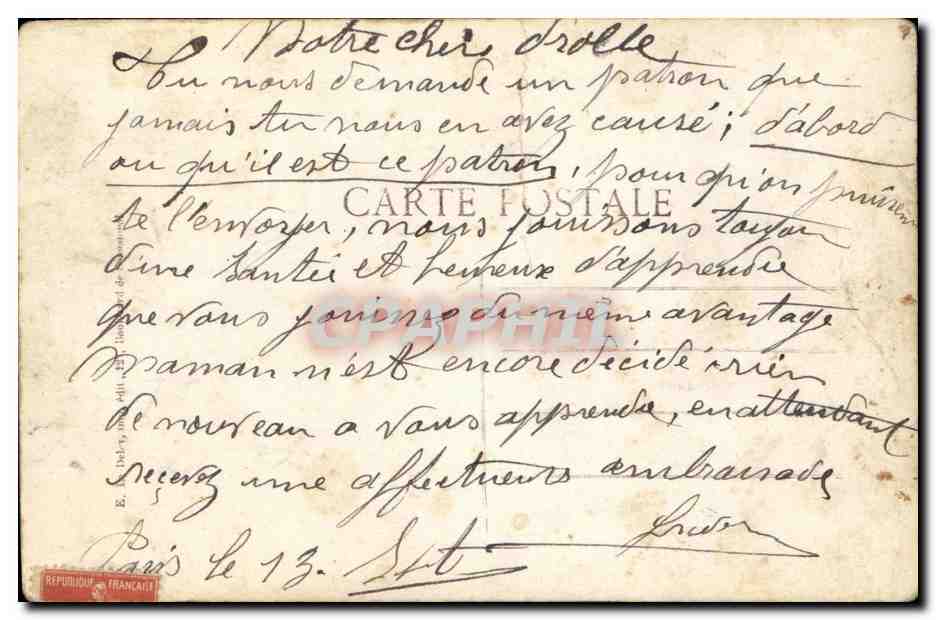 Notre chere drolle
Tu nous demande un patron que
jamais tu nous en avez causé; d'abord
ou qu'il est ce patron, pour qu'on puisent
CARTE POSTALE
te l'envoyer, nous jouissons toujour
d'une santée et heureux d'apprendre
que vous jouissez du même avantage
CPAPHIL
maman n'est encore décidé, rien
de nouveau a vous apprendre, en attendant
reçevez une affectueuse embrassade
Paris le 13. Sept
REPUBLIQUE FRANÇAISE